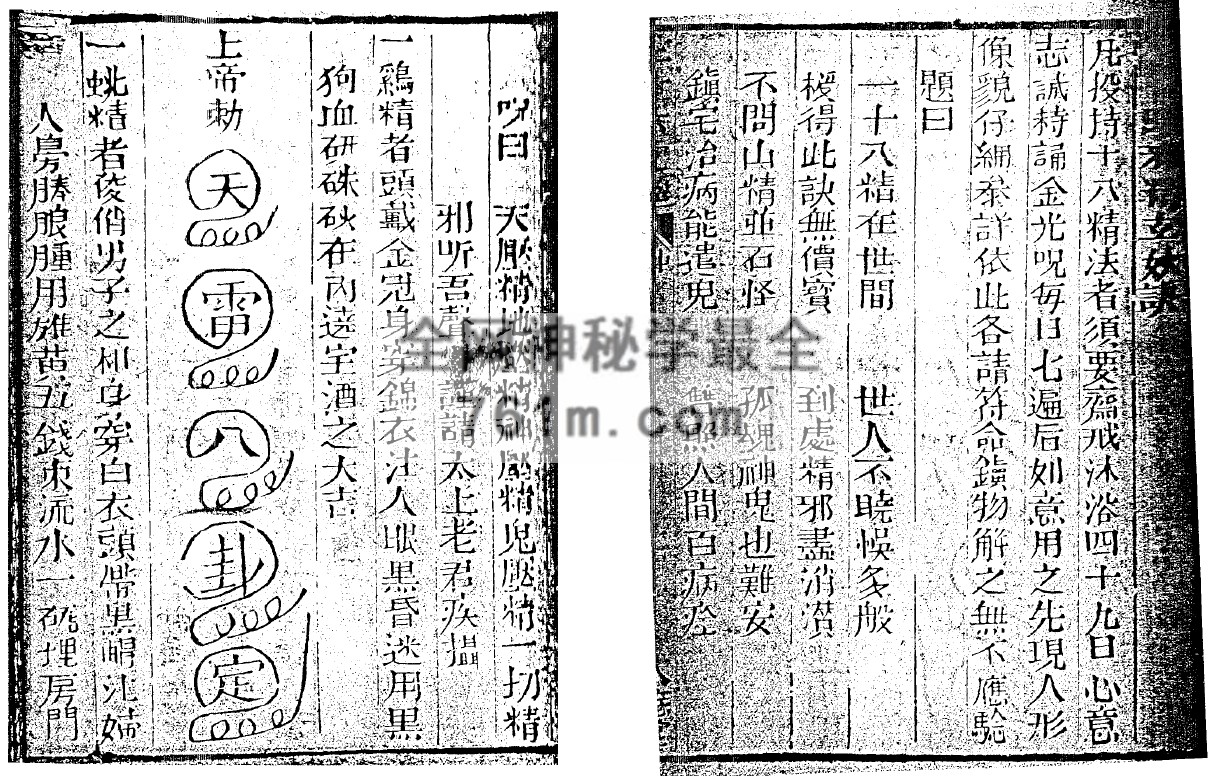 凡投持十八精法者須要齋戒沐浴四十九日心意
志誠持誦金光呪每日七遍后如意用之先現人形
像貌仔細叅詳依此各請符命鎮物解之無不應驗
題曰
一十八精在世間 世人不曉悞多般
授得此訣無價寳 到處精邪盡消潰
不問山精並石怪 孤魂神鬼也難安
鎮宅治病能遣鬼 人間百病痊
呪曰 天壓精地壓精神壓精鬼壓精一切精
邪听吾聲 請太上老君疾攝
一鷄精者頭戴金冠身穿錦衣注人眼黒昏迷用黒
狗血研硃砂在內遶宅洒之大吉
上帝勅 天 雷 八 卦 定
一 精者俊俏男子之相身穿白衣頭帶黒帽注婦
人房勝脹腫用雄黃五錢東流水一 埋房門
全网神秘学最全
761m.com